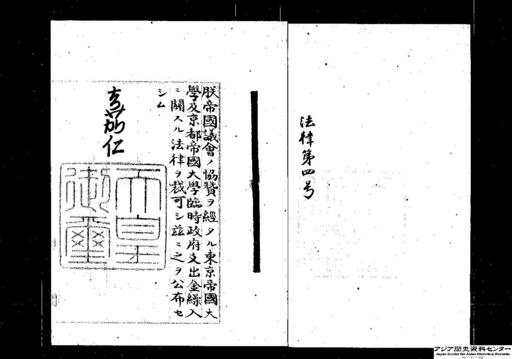 法律第四号
朕帝國議會ノ協贊ヲ經タル東京帝國大
學及京都帝國大學臨時政府支出金繰入
ニ關スル法律ヲ裁可シ茲ニ之ヲ公布セ
シム
嘉仁
天皇
御璽
アジア歴史資料センター
Japan Center for Asian Historical Records